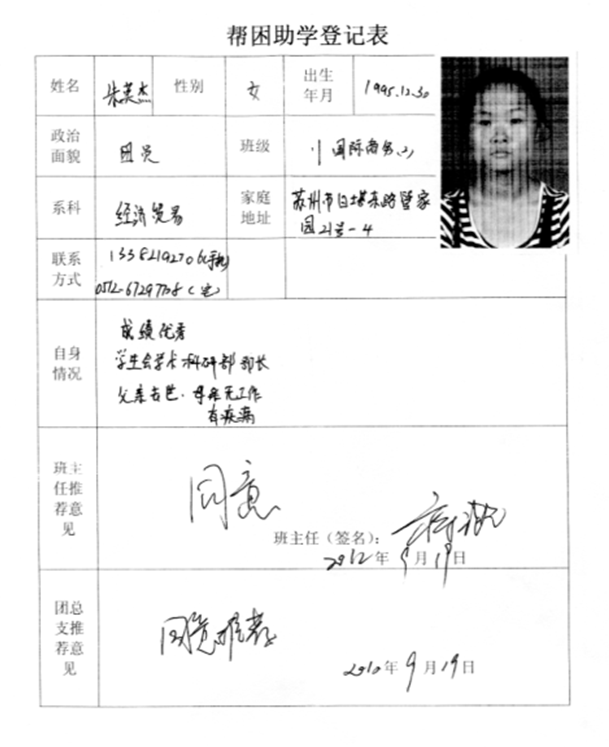 帮困助学登记表
姓名 朱英杰 性别 女 出生年月 1995.12.30
政治面貌 团员 班级 国际商务(2)
系科 经济贸易 家庭地址 苏州市白塘东路管家
园21号-4
联系方式 13382192706(手机)
0512-67297708(宅)
自身情况 成绩优秀
学生会学术科研部部长
父亲去世.母亲无工作
有疾病
班主任推荐意见 同意
班主任(签名):
2012年9月19日
团总支推荐意见 同意推荐
2010年9月19日